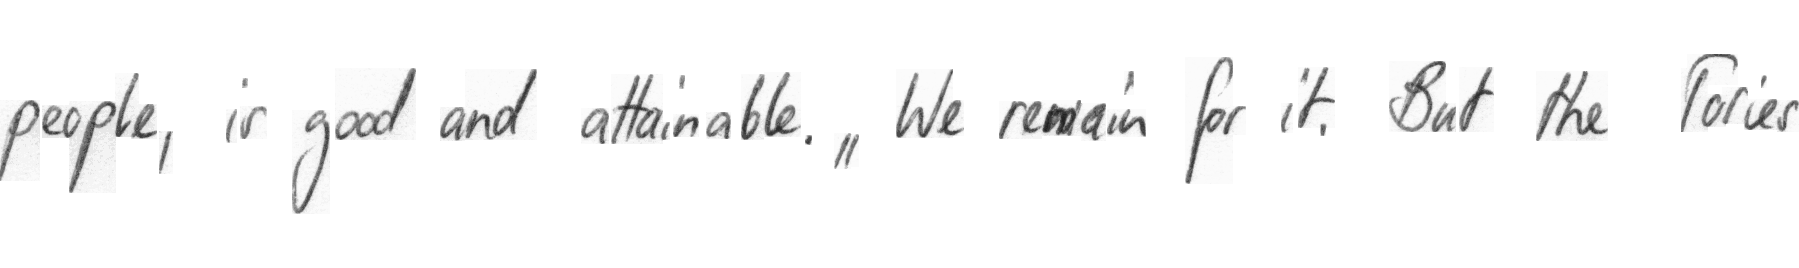 people, is good and attainable. „ We remain for it. But the Tories